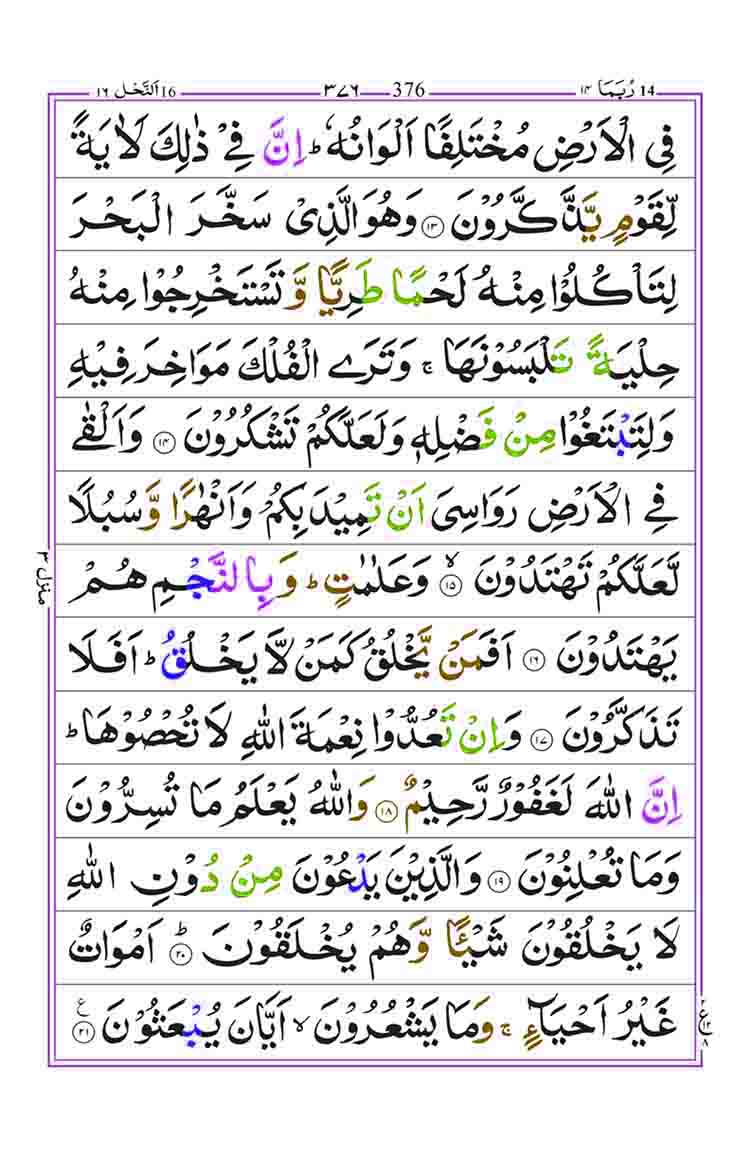 14 رُبَمَا ۱۴ 376 ۳۷۶ 16 اَلنَّحْل ۱۶
فِى الْاَرْضِ مُخْتَلِفًا اَلْوَانُهٗ ؕ اِنَّ فِىْ ذٰلِكَ لَاٰيَةً
لِّقَوْمٍ يَّذَّكَّرُوْنَ ﴿۱۳﴾ وَهُوَ الَّذِىْ سَخَّرَ الْبَحْرَ
لِتَاْكُلُوْا مِنْهُ لَحْمًا طَرِيًّا وَّ تَسْتَخْرِجُوْا مِنْهُ
حِلْيَةً تَلْبَسُوْنَهَا ۚ وَ تَرَى الْفُلْكَ مَوَاخِرَ فِيْهِ
وَلِتَبْتَغُوْا مِنْ فَضْلِهٖ وَلَعَلَّكُمْ تَشْكُرُوْنَ ﴿۱۴﴾ وَ اَلْقٰى
فِى الْاَرْضِ رَوَاسِىَ اَنْ تَمِيْدَ بِكُمْ وَ اَنْهٰرًا وَّ سُبُلًا
لَّعَلَّكُمْ تَهْتَدُوْنَ ۙ﴿۱۵﴾ وَعَلٰمٰتٍ ؕ وَ بِالنَّجْمِ هُمْ
يَهْتَدُوْنَ ﴿۱۶﴾ اَفَمَنْ يَّخْلُقُ كَمَنْ لَّا يَخْلُقُ ؕ اَفَلَا
تَذَكَّرُوْنَ ﴿۱۷﴾ وَ اِنْ تَعُدُّوْا نِعْمَةَ اللّٰهِ لَا تُحْصُوْهَا ؕ
اِنَّ اللّٰهَ لَغَفُوْرٌ رَّحِيْمٌ ﴿۱۸﴾ وَاللّٰهُ يَعْلَمُ مَا تُسِرُّوْنَ
وَمَا تُعْلِنُوْنَ ﴿۱۹﴾ وَالَّذِيْنَ يَدْعُوْنَ مِنْ دُوْنِ اللّٰهِ
لَا يَخْلُقُوْنَ شَيْـًٔا وَّهُمْ يُخْلَقُوْنَ ؕ﴿۲۰﴾ اَمْوَاتٌ
غَيْرُ اَحْيَآءٍ ۚ وَمَا يَشْعُرُوْنَ ۙ اَيَّانَ يُبْعَثُوْنَ ﴿۲۱﴾ ع
منزل ۳